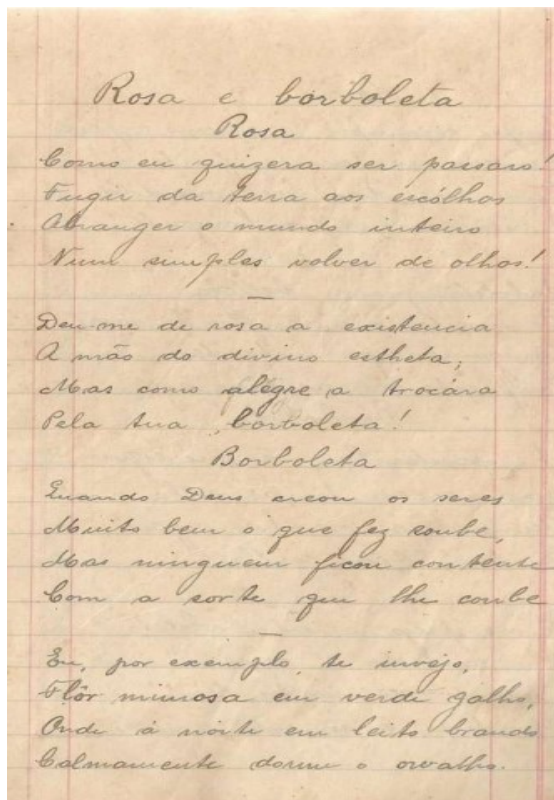 Rosa e borboleta
Rosa
Como eu quizera ser passaro!
Fugir da terra aos escólhos
Abranger o mundo inteiro
Num simples volver de olhos!
—
Deu-me de rosa a existencia
A mão do divino estheta;
Mas como alegre a trocára
Pela tua, borboleta!
Borboleta
Quando Deus creou os seres
Muito bem o que fez soube,
Mas ninguem ficou contente
Com a sorte que lhe coube
—
Eu, por exemplo, te invejo,
Flôr mimosa em verde galho,
Onde á noite em leito brando
Calmamente dorme o orvalho.